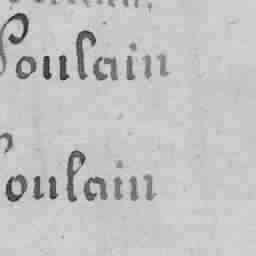 Poulain
Poulain